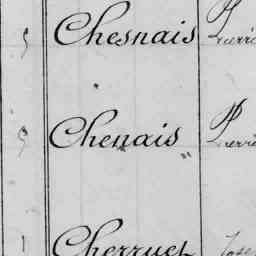 5 Chesnais Pierre
5 Chenais Pierre
1 Cherruel Jose